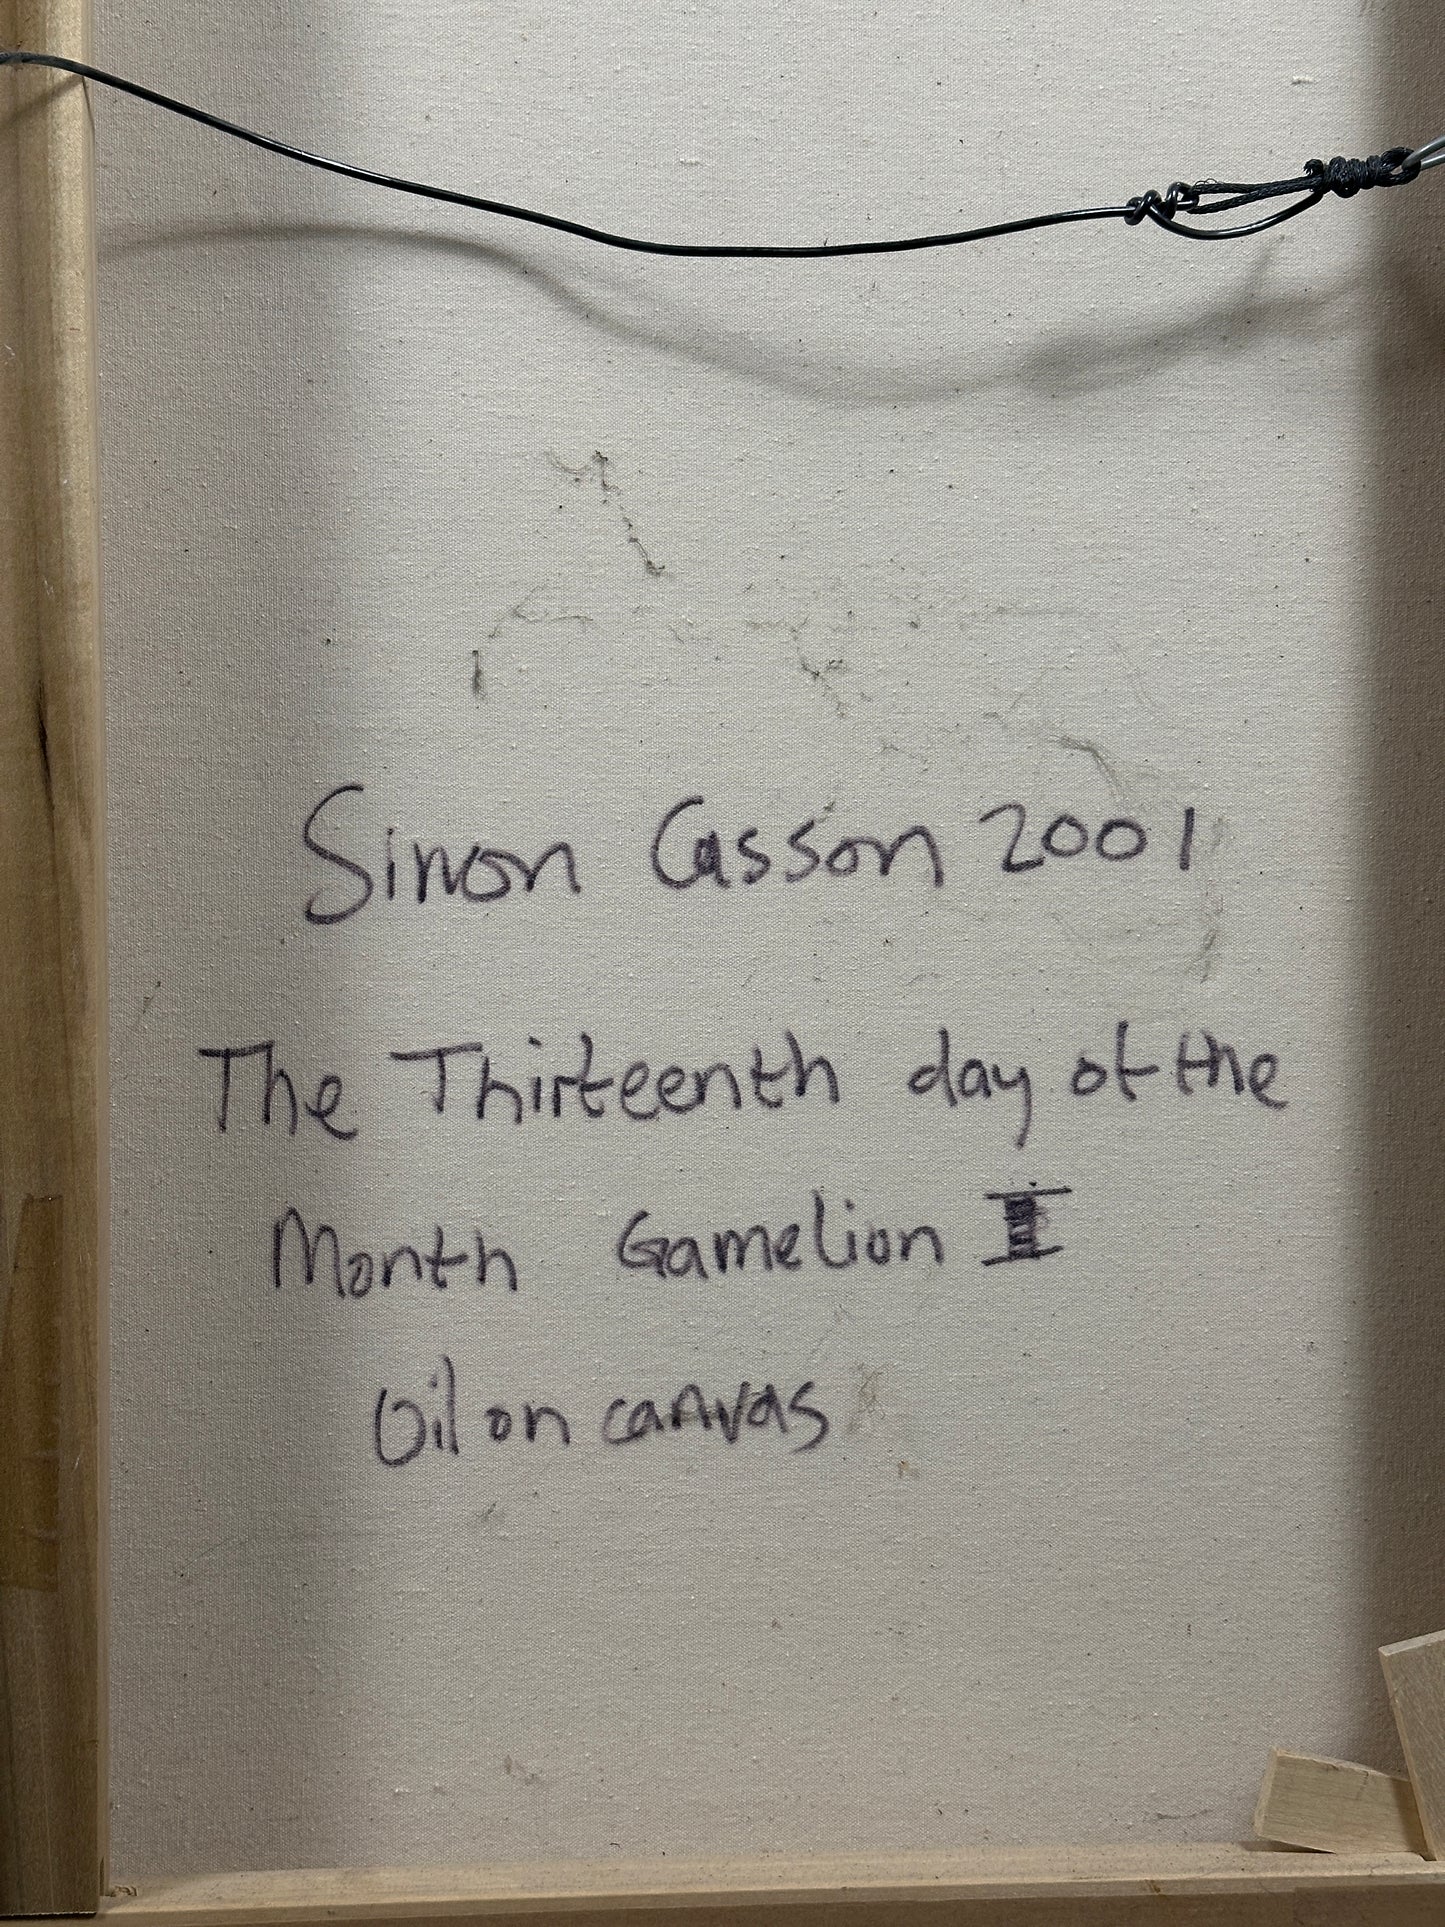 Simon Casson 2001
The Thirteenth day of the
Month Gamelion I
Oil on canvas